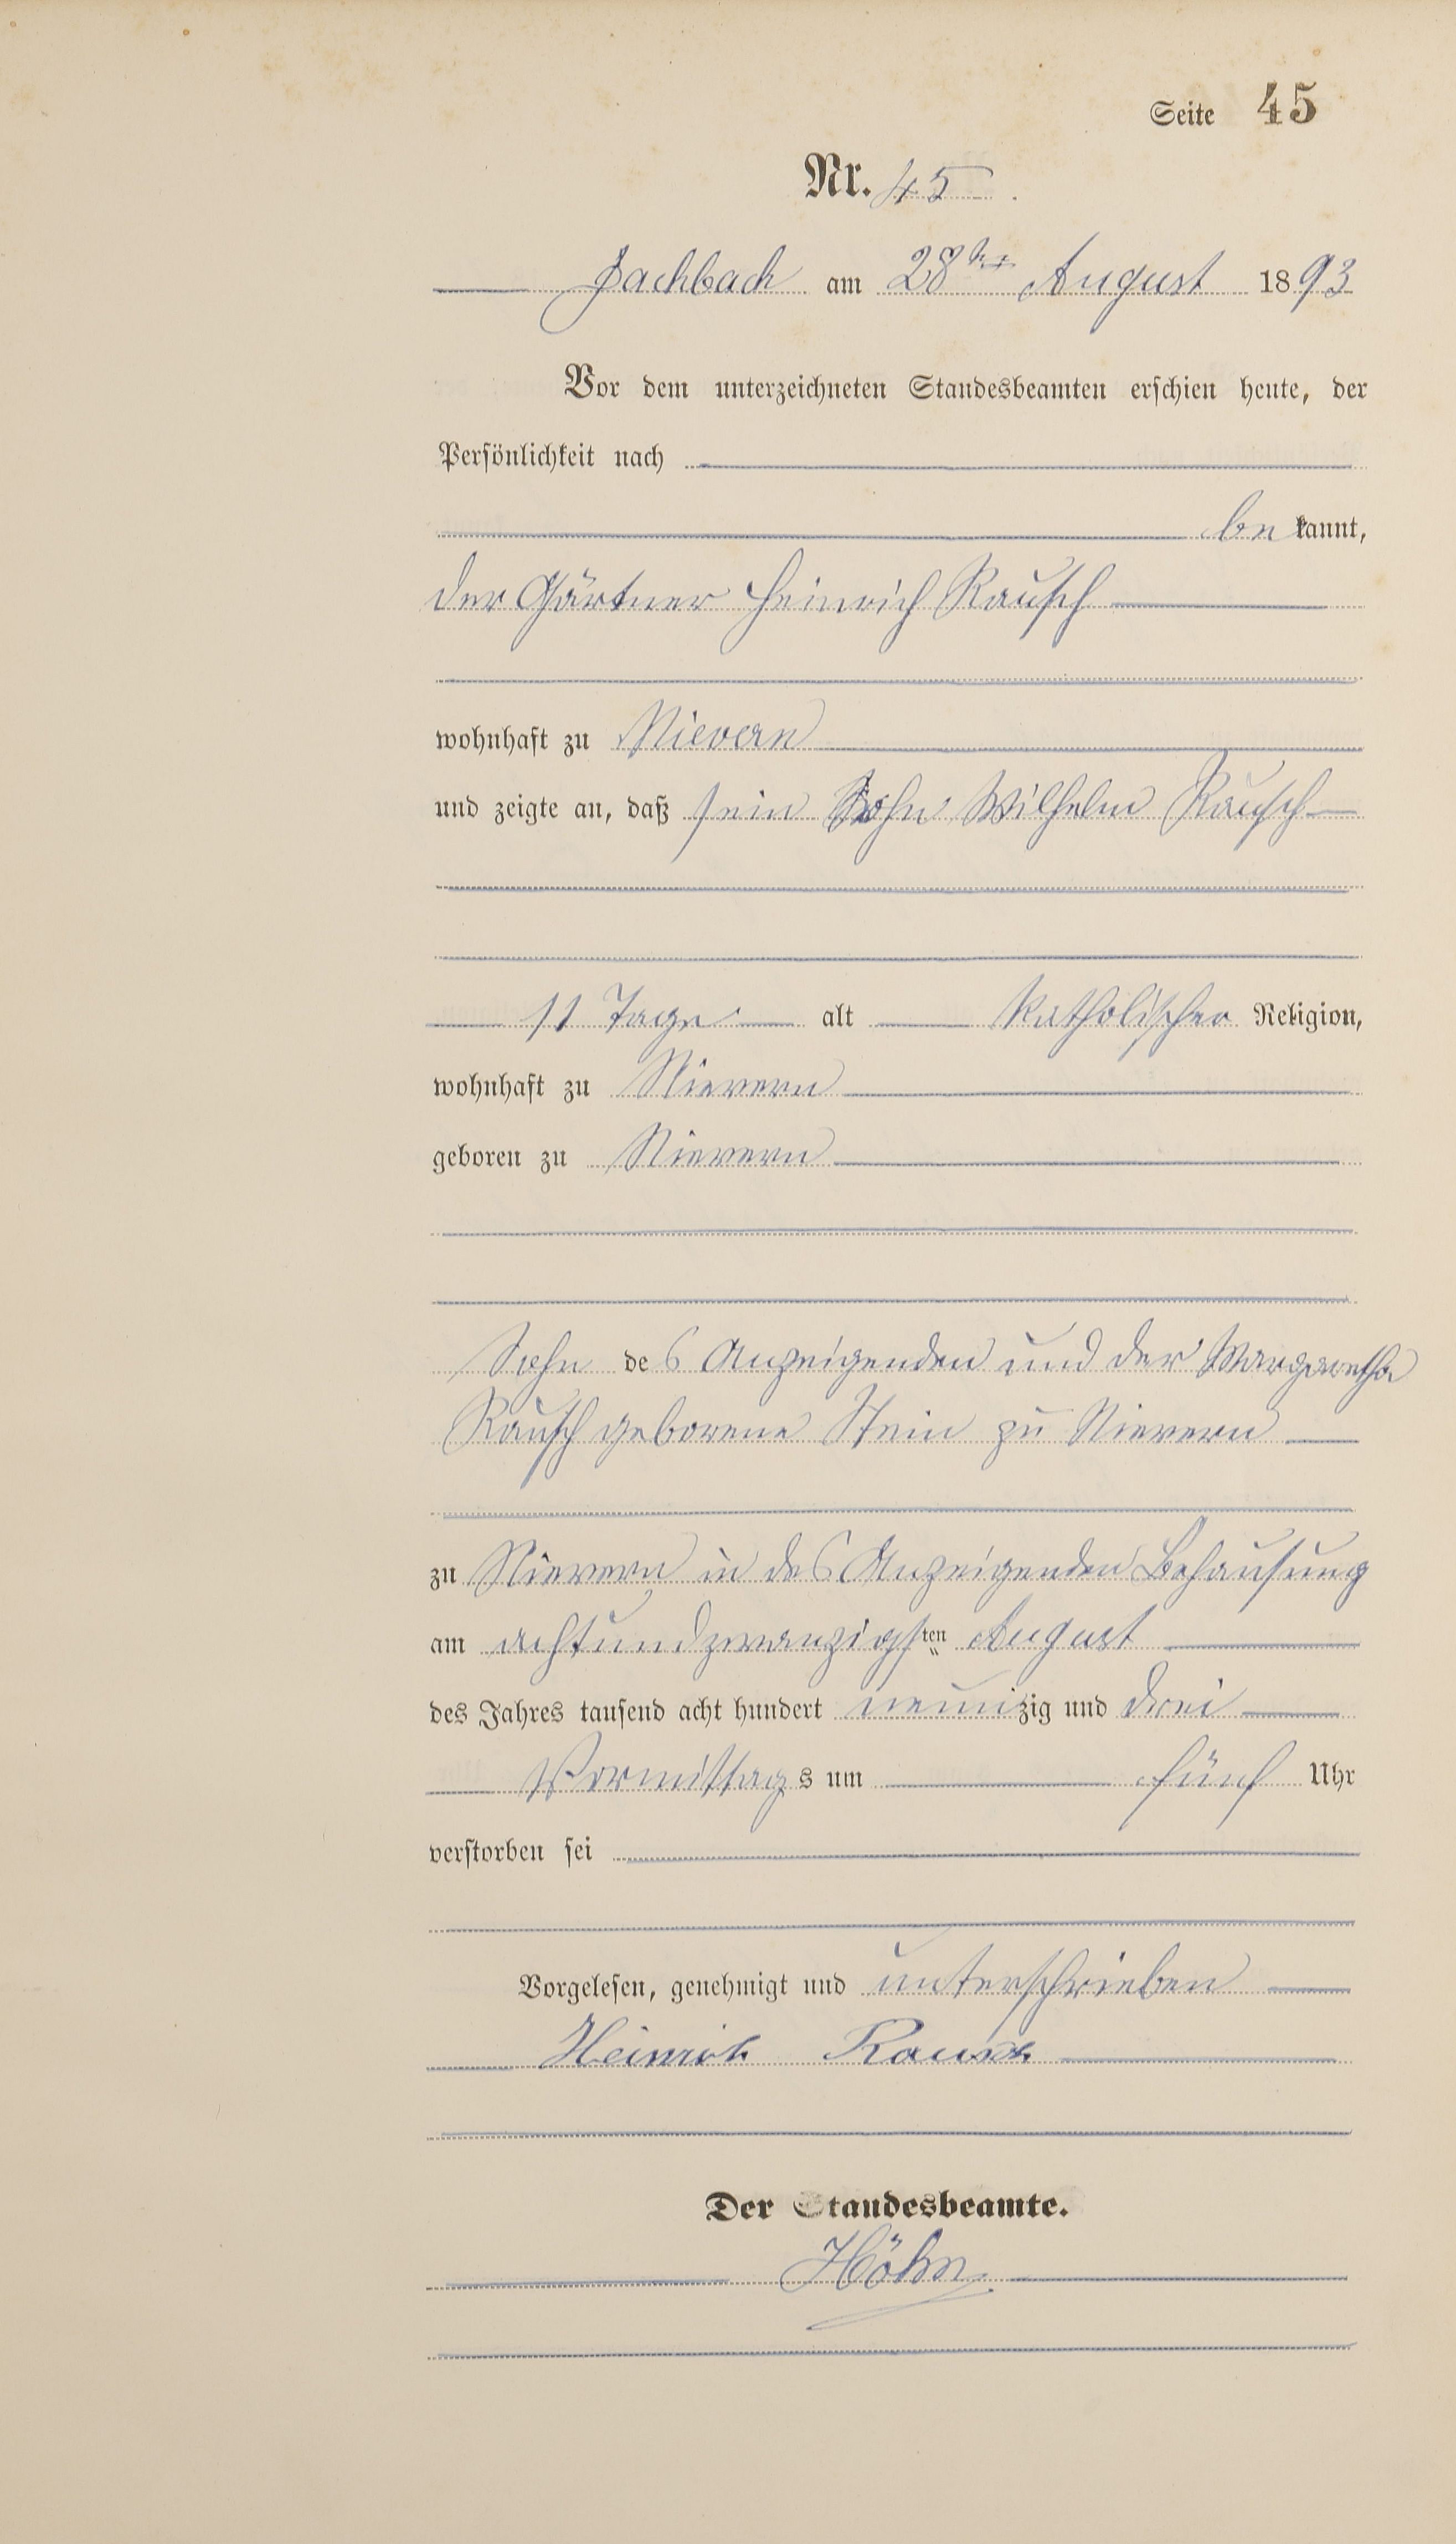 Seite 45
Nr. 45.
Fachbach am 28ten August 1893
Vor dem unterzeichneten Standesbeamten erschien heute, der
Persönlichkeit nach
bekannt,
der Gärtner Heinrich Rausch
wohnhaft zu Nievern
und zeigte an, daß sein Sohn Wilhelm Rausch
11 Tage alt katholischer Religion,
wohnhaft zu Nievern
geboren zu Nievern
Sohn des Anzeigenden und der Margaretha
Rausch geborene Stein zu Nievern
zu Nievern in des Anzeigenden Behausung
am achtundzwanzigsten August
des Jahres tausend acht hundert neunzig und drei
Vormittags um fünf Uhr
verstorben sei
Vorgelesen, genehmigt und unterschrieben
Heinrich Rausch
Der Standesbeamte.
Höhn